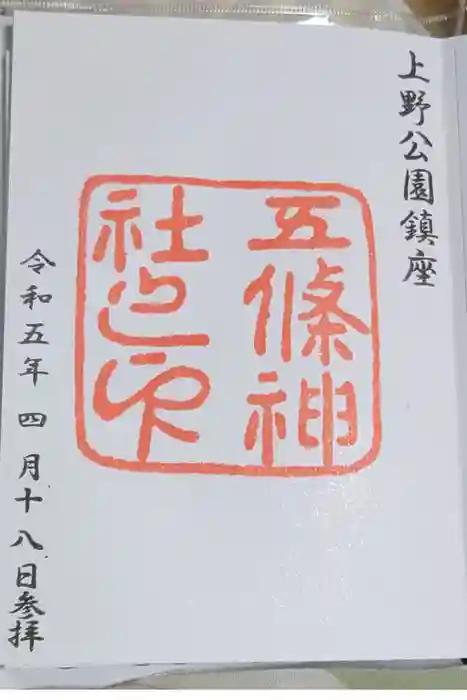 上野公園鎮座
五條神
社之印
令和五年四月十八日参拝